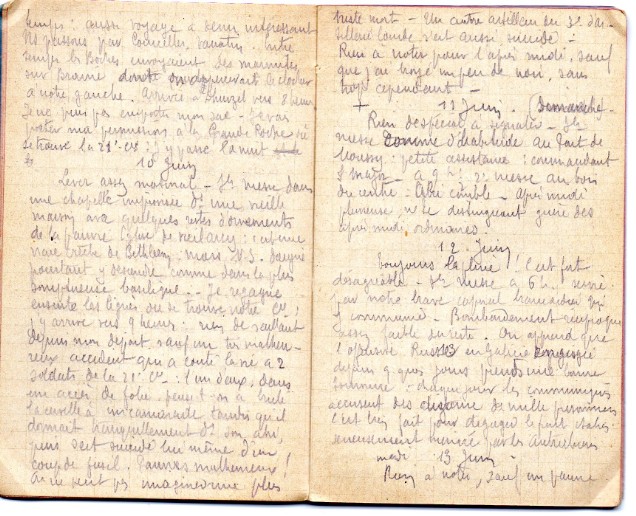 temps : aussi voyage à demi intéressant
Ns passons par Courcelles, : entre
temps les Boches envoyaient des marmites
sur Braine dont on apercevait le clocher
à notre gauche. Arrivée à Dhuizel vers 8 heures
Je ne puis pas emporter mon sac. J'avais
porter ma permission à la Grande Roche où
se trouve la 21e Cie : j'y passe la nuit
10 Juin
Lever assez matinal - Ste messe dans
une chapelle improvisée ds une vieille
maison avec quelques restes d'ornements
de la pauvre église de : c'est une
vraie crèche de Bethléem : mais N.S. daigne
pourtant y descendre comme dans la plus
somptueuse basilique. Je regagne
ensuite les lignes où se trouve notre Cie ;
j'y arrive vers 9 heures : rien de saillant
depuis mon départ, sauf un très malheu-
reux accident qui a coûté la vie à 2
soldats de la 21e Cie : l'un d'eux, dans
un accès de folie, peut-on a brûlé
la cervelle à un camarade tandis qu'il
dormait tranquillement ds son abri,
puis s'est suicidé lui même d'un
coup de fusil. Pauvres malheureux !
On ne peut pas imaginer une plus
triste mort - Un autre artilleur du 3e d'ar-
tillerie lourde s'est aussi suicidé -
Rien à noter pour l'après midi, sauf
que j'ai un peu de noir, sans
trop cependant -
+ 11 Juin. (Dimanche)
Rien de spécial à signaler - Ste
messe comme d'habitude au
Moussy : petite assistance : commandant
& major - à 9 h : 2e messe au bois
du centre : comble - Après midi
pluvieuse, ne se distinguant guère des
après midi ordinaires.
12 Juin
Toujours la pluie ! C'est fort
désagréable - Ste messe à 6 h, servie
par notre brave caporal qui
y communie - Bombardement réciproque
assez faible du reste. On apprend que
l'offensive Russe en Galicie engagée
depuis q.ques jours prend une bonne
tournure : les communiqués
accusent des centaine de mille prisonniers
C'est bien fait pour dégager le front italien
sérieusement menacé par les Autrichiens
mardi 13 Juin
Rien à noter, sauf un pauvre